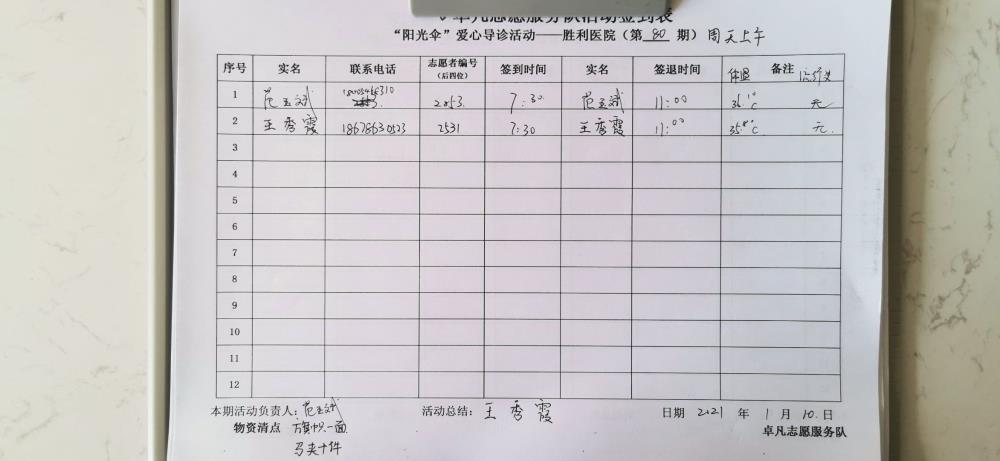 卓凡志愿服务队活动签到表
“阳光伞”爱心导诊活动——胜利医院（第 80 期）周天上午
序号 实名 联系电话 志愿者编号（后四位） 签到时间 实名 签退时间 体温 备注
1 范玉斌 2853 7:30 范玉斌 11:00 36.1°C 无
2 王秀霞 18678630523 2531 7:30 王秀霞 11:00 35.8°C 无
3
4
5
6
7
8
9
10
11
12
本期活动负责人：范玉斌 活动总结：王秀霞 日期 2021 年 1 月 10 日
物资清点 一面 卓凡志愿服务队
马夹十件